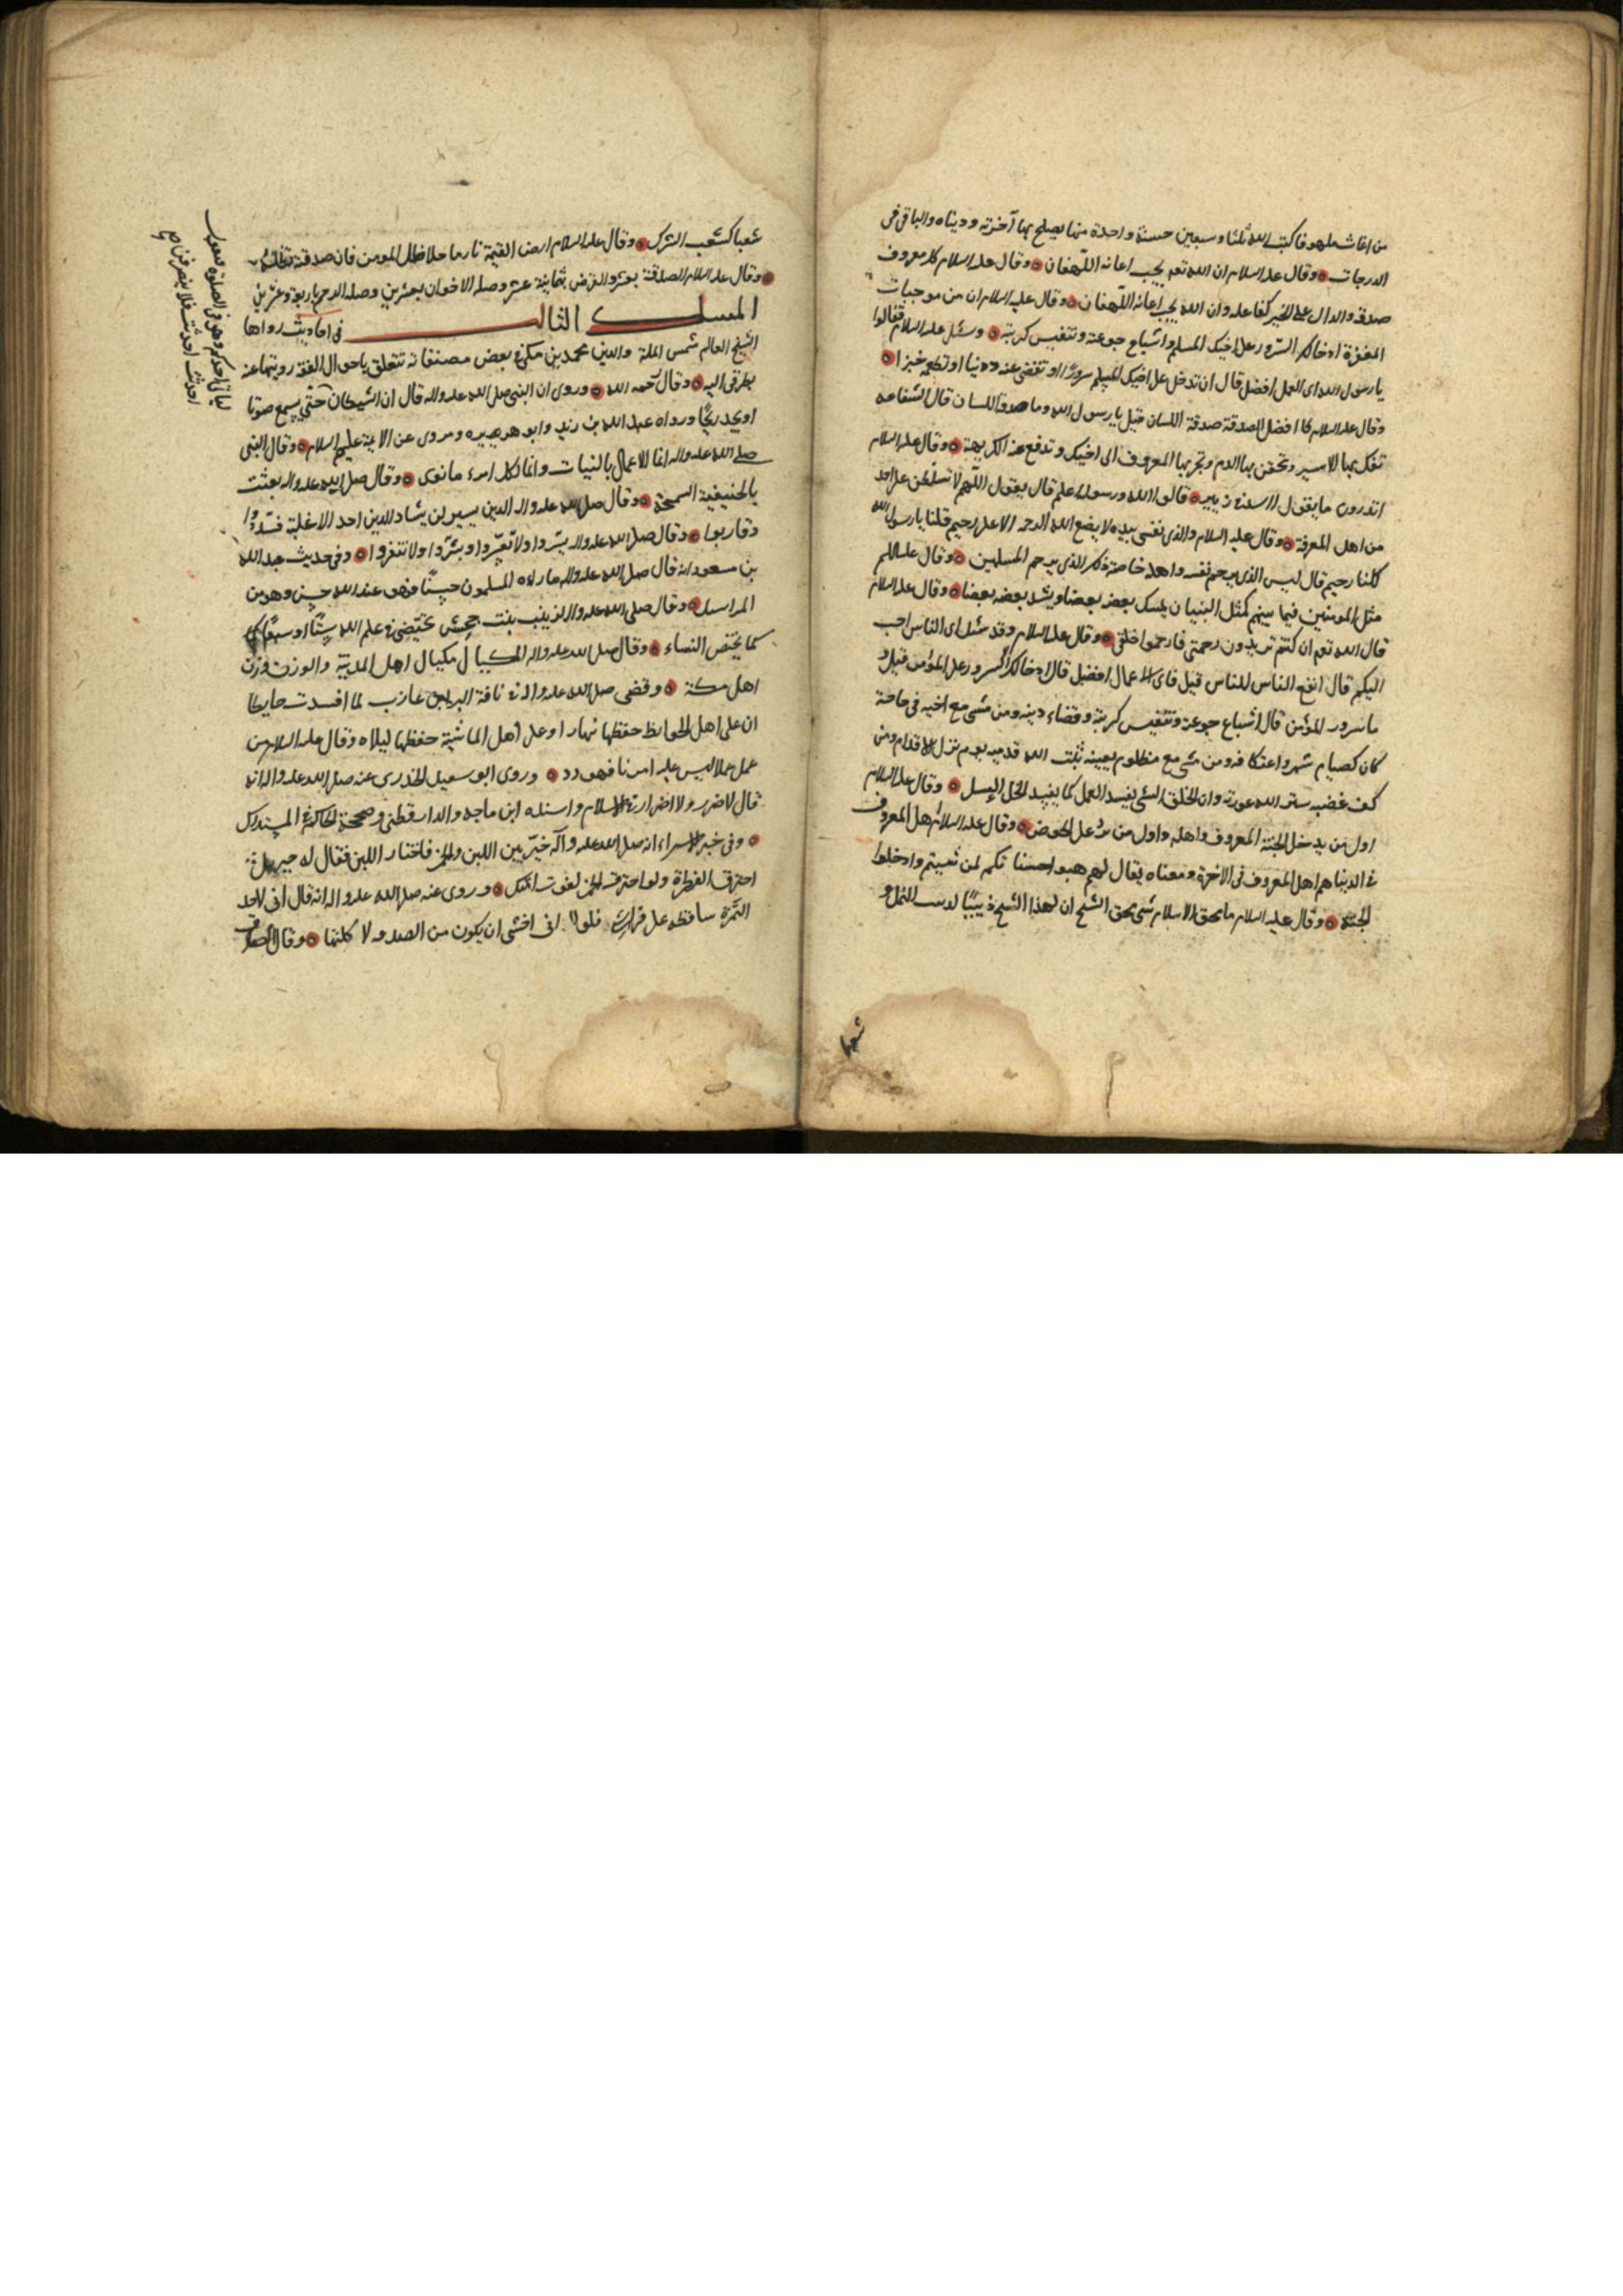 من اغاث ملهوفا كتب الله ثلثا وسبعين حسنة واحدة منها يصلح بها آخرته ودنياه والباقى فى
الدرجات وقال عليه السلام ان الله تعم يحب اعانه اللهفان وقال عليه السلام كل معروف
صدقه والدال على الخير كفاعله وان الله يحب اغاثه اللهفان وقال عليه السلام ان من موجبات
المغفرة ادخالك السرور على اخيك المسلم واشباع جوعته وتنفيس كربته وسئل عليه السلام فقالوا
يا رسول الله اى العمل افضل قال ان تدخل على اخيك المسلم سرورًا او تقضى عنه دينا او تطعمه خبزا
وقال عليه السلام افضل الصدقة صدقة اللسان قيل يا رسول الله وما صدقة اللسان قال الشفاعه
تفك بها الاسير وتحقن بها الدم وتجر بها المعروف الى اخيك وتدفع عنه الكريهة وقال عليه السلام
اتدرون ما يقول الاسد فى زييره قالوا الله ورسوله اعلم قال يقول اللهم لا تسلطنى على احد
من اهل المعرفة وقال عليه السلام والذى نفسى بيده لا يضع الله الرحمه الا على رحيم قلنا يا رسول الله
كلنا رحيم قال ليس الذى يرحم نفسه واهله خاصة ذلك الذى يرحم المسلمين وقال عليه السلام
مثل المومنين فيما بينهم كمثل البنيان يمسك بعضه بعضا ويشد بعضه بعضا وقال عليه السلام
قال الله تعم ان كنتم تريدون رحمتى فارحموا خلقى وقال عليه السلام وقد سئل اى الناس احب
اليكم قال انفع الناس للناس قيل فاى الاعمال افضل قال ادخالك السرور على المؤمن قيل و
ما سرور المؤمن قال اشباع جوعته وتنفيس كربته وقضاء دينه ومن مشى مع اخيه فى حاجة
كان كصيام شهر واعتكافه ومن مشى مع مظلوم يعينه ثبت الله قدميه يوم تزل الاقدام ومن
كف غضبه ستر الله عورته وان الخلق السئ يفسد العمل كما يفسد الخل العسل وقال عليه السلام
اول من يدخل الجنة المعروف واهله واول من يرد على الحوض وقال عليه السلام اهل المعروف
فى الدنيا هم اهل المعروف فى الاخرة ومعناه يقال لهم هبوا حسناتكم لمن شئتم وادخلوا
الجنة وقال عليه السلام ما محق الاسلام شى محق الشح ان لهذا الشح دبيبا كدبيب النمل و
شعبا
شعبا كشعب الشرك وقال عليه السلام ارض القيمة نار ما خلا ظل المومن فان صدقته تظله
وقال عليه السلام الصدقة بعشر والقرض بثمانية عشر وصله الاخوان بعشرين وصله الرحم باربعة وعشرين
المسلك الثالث فى احاديث رواها
الشيخ العالم شمس الملة والدين محمد بن مكى فى بعض مصنفاته تتعلق باحوال الفقه رويتها عنه
بطرقى اليه وقال رحمه الله وروى ان النبى صلى الله عليه واله قال ان الشيطان
لياتى احدكم وهو فى الصلوة فيقول
احدثت احدثت فلا ينصرفن صح
حتى يسمع صوتا
او يجد ريحًا ورواه عبد الله بن زيد وابو هريره ومروى عن الايمة عليهم السلام وقال النبى
صلى الله عليه واله انما الاعمال بالنيات وانما لكل امرء ما نوى وقال صلى الله عليه واله بعثت
بالحنيفية السمحة وقال صلى الله عليه واله الدين يسير لن يشاد الدين احد الا غلبه فسددوا
وقاربوا وقال صلى الله عليه واله يسّروا ولا تعسّروا وبشّروا ولا تنفروا وفى حديث عبد الله
بن مسعود انه قال صلى الله عليه واله ما راه المسلمون حسنًا فهو عند الله حسن وهو من
المراسيل وقال صلى الله عليه واله لزينب بنت جحش تحيّضى فى علم الله ستًّا او سبعًا
كما تحيّض النساء وقال صلى الله عليه واله المكيال مكيال اهل المدينة والوزن وزن
اهل مكة وقضى صلى الله عليه واله فى ناقة البراء بن عازب لما افسدت حايطا
ان على اهل الحوايط حفظها نهارا وعلى اهل الماشية حفظها ليلا وقال عليه السلام من
عمل عملا ليس عليه امرنا فهو رد وروى ابو سعيد الخدرى عنه صلى الله عليه واله انه
قال لا ضرر ولا اضرار فى الاسلام واسنده ابن ماجه والدارقطنى وصححه الحاكم فى المستدرك
وفى خبر الاسراء انه صلى الله عليه وآله خيّر بين اللبن والخمر فاختار اللبن فقال له جبريل
اخترت الفطرة ولو اخترت الخمر لغوت امتك وروى عنه صلى الله عليه واله انه قال انى لاجد
التمرة ساقطه على فراشى فلولا انى اخشى ان يكون من الصدقه لاكلتها وقال الصادق